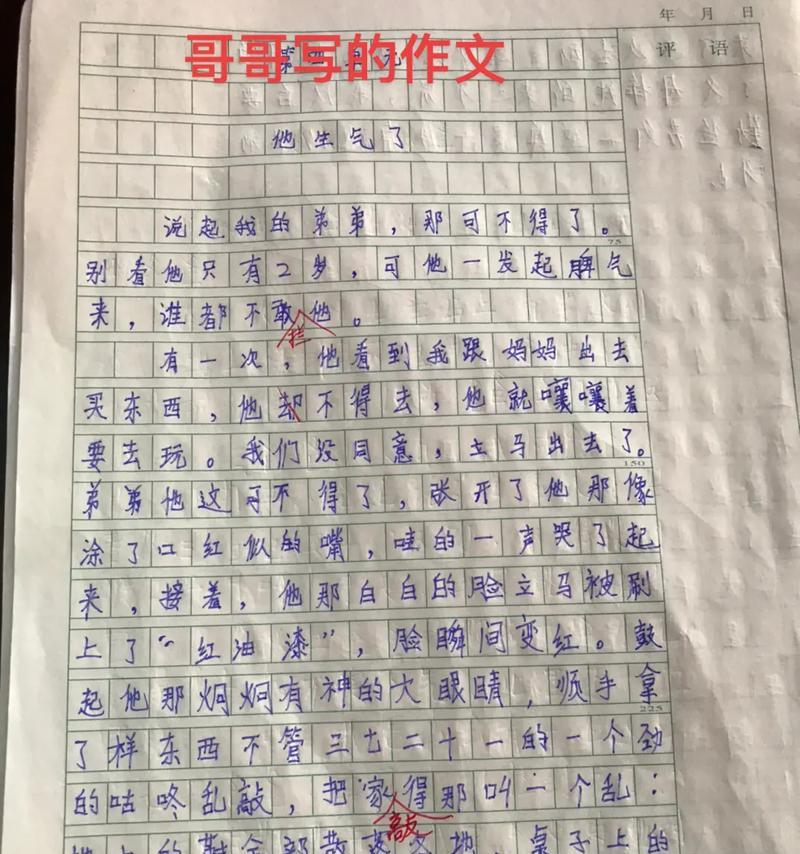 年 月 日
哥哥写的作文
评 语
他生气了
说起我的弟弟，那可不得了。
75
别看他只有2岁，可他一发起脾气
来，谁都不敢他。
有一次，他看到我跟妈妈出去
买东西，他却不得去，他就嚷嚷着
要去玩。我们没同意，立马出去了。
150
弟弟他这可不得了，张开了他那像
涂了口红似的嘴，哇的一声哭了起
来，接着，他那白白的脸立马被刷
上了“红油漆”，脸瞬间变红。鼓
起他那炯炯有神的大眼睛，顺手拿
225
了样东西不管三七二十一的一个劲
的咕咚乱敲，把家得那叫一个乱：
敲
上的鞋全部散落各地，桌子上的